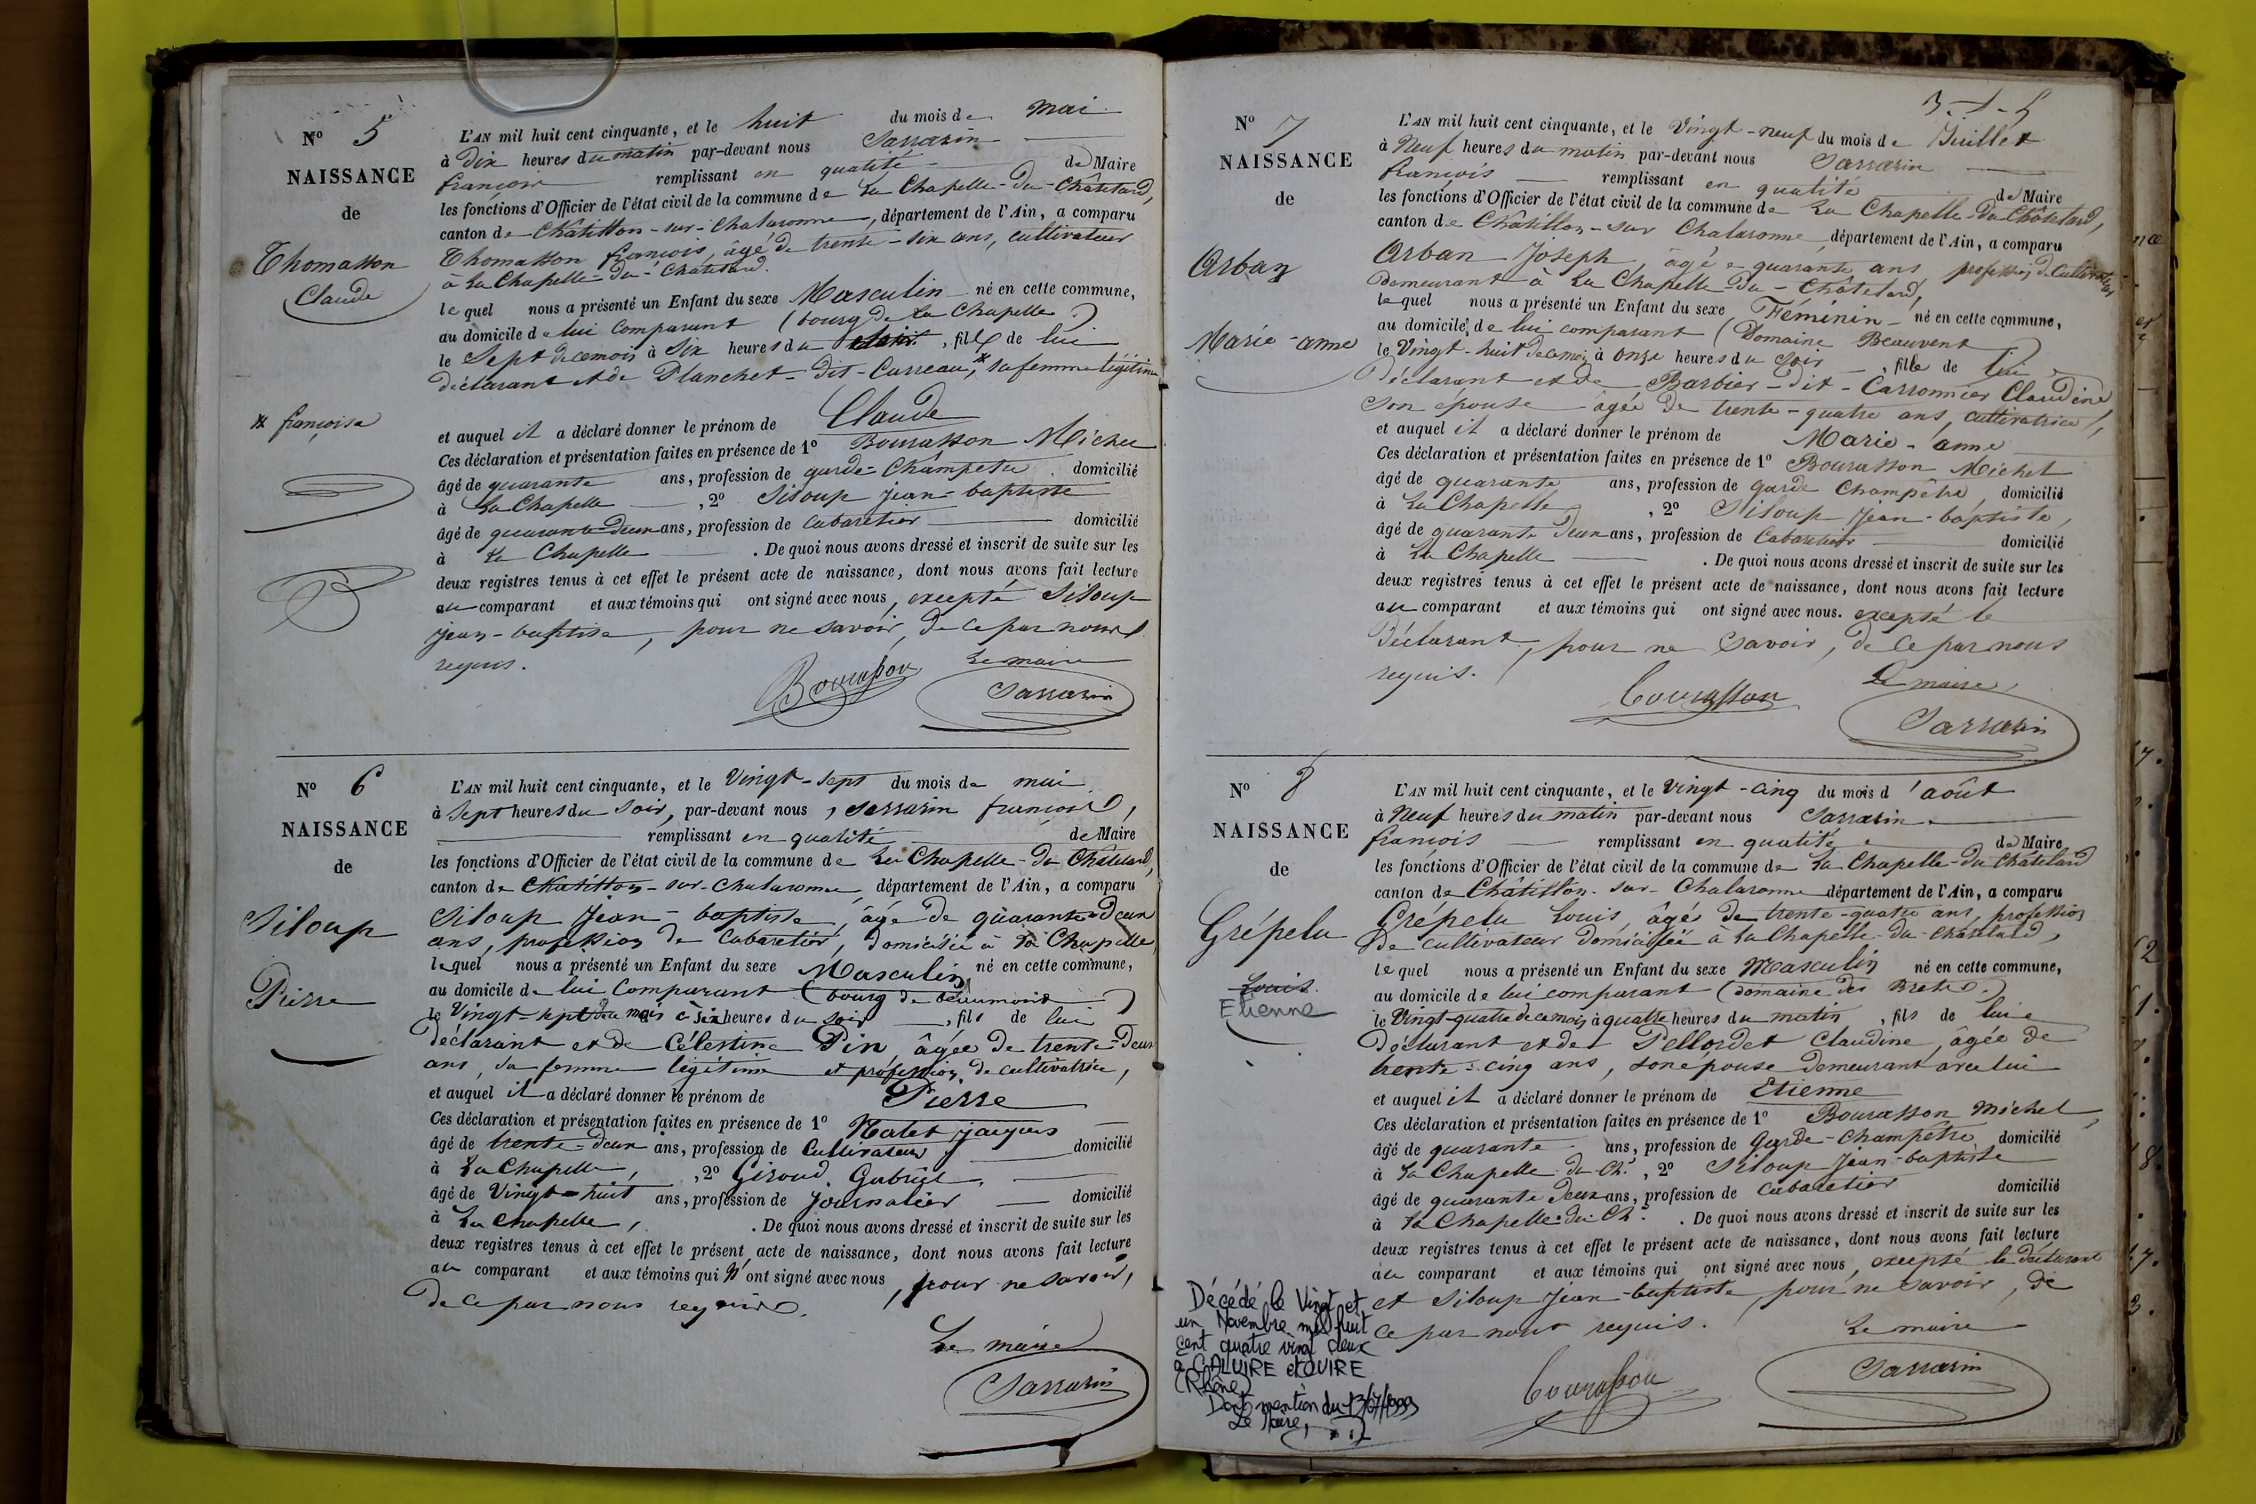 N° 5
NAISSANCE
de
Thomasson
Claude
* françoise
L'AN mil huit cent cinquante, et le huit du mois de mai
à Dix heures du matin par-devant nous Sarrazin
françois remplissant en qualité de Maire
les fonctions d'Officier de l'état civil de la commune de La Chapelle-du-Châtelard,
canton de Châtillon-sur-Chalaronne, département de l'Ain, a comparu
Thomasson françois, âgé de trente-six ans, cultivateur
à La Chapelle-du-Châtelard.
lequel nous a présenté un Enfant du sexe Masculin né en cette commune,
au domicile de lui comparant (bourg de La Chapelle)
le Sept de ce mois à Six heures du soir, fils de lui
déclarant et de Planchet-dit-Carreau,* sa femme légitime
et auquel il a déclaré donner le prénom de Claude
Ces déclaration et présentation faites en présence de 1° Bourasson Michel
âgé de quarante ans, profession de garde-Champêtre domicilié
à La Chapelle, 2° Siloup jean-baptiste
âgé de quarante-Deux ans, profession de Cabaretier domicilié
à La Chapelle. De quoi nous avons dressé et inscrit de suite sur les
deux registres tenus à cet effet le présent acte de naissance, dont nous avons fait lecture
au comparant et aux témoins qui ont signé avec nous, excepté Siloup
jean-baptiste, pour ne savoir, de ce par nous
requis.
Bourasson Le maire
Sarrazin
N° 6
NAISSANCE
de
Siloup
Pierre
L'AN mil huit cent cinquante, et le Vingt-sept du mois de mai
à Sept heures du Soir, par-devant nous, Sarrazin françois,
remplissant en qualité de Maire
les fonctions d'Officier de l'état civil de la commune de La Chapelle-du Châtelard,
canton de Châtillon-sur-Chalaronne, département de l'Ain, a comparu
Siloup Jean-baptiste, âgé de quarante-Deux
ans, profession de Cabaretier, domicilié à La Chapelle,
lequel nous a présenté un Enfant du sexe Masculin né en cette commune,
au domicile de lui Comparant (bourg de Beaumont)
le Vingt-sept du mois à Six heures du soir, fils de lui
déclarant et de Célestine Pin, âgée de trente-Deux
ans, sa femme légitime et profession de cultivatrice,
et auquel il a déclaré donner le prénom de Pierre
Ces déclaration et présentation faites en présence de 1° jacques
âgé de trente-deux ans, profession de Cultivateur domicilié
à La Chapelle, 2° Giroud Gabriel,
âgé de Vingt-huit ans, profession de Journalier domicilié
à La Chapelle, . De quoi nous avons dressé et inscrit de suite sur les
deux registres tenus à cet effet le présent acte de naissance, dont nous avons fait lecture
au comparant et aux témoins qui n'ont signé avec nous, pour ne savoir,
de ce par nous requis.
Le maire
Sarrazin
N° 7
NAISSANCE
de
Arban
Marie-anne
L'AN mil huit cent cinquante, et le Vingt-neuf du mois de Juillet
à Neuf heures du matin par-devant nous Sarrazin
françois remplissant en qualité de Maire
les fonctions d'Officier de l'état civil de la commune de La Chapelle-du Châtelard,
canton de Châtillon-sur Chalaronne, département de l'Ain, a comparu
Arban Joseph, âgé de quarante ans, profession de Cultivateur
demeurant à La Chapelle-du-Châtelard,
lequel nous a présenté un Enfant du sexe Féminin né en cette commune,
au domicile de lui comparant (Domaine Beauvent)
le Vingt-huit de ce mois à onze heures du Soir, fille de lui
Déclarant et de Barbier-dit-Carronnier Claudine
son épouse âgée de trente-quatre ans, cultivatrice,
et auquel il a déclaré donner le prénom de Marie-anne
Ces déclaration et présentation faites en présence de 1° Bourasson Michel
âgé de quarante ans, profession de garde Champêtre, domicilié
à La Chapelle, 2° Siloup Jean-baptiste,
âgé de quarante Deux ans, profession de Cabaretier domicilié
à La Chapelle. De quoi nous avons dressé et inscrit de suite sur les
deux registres tenus à cet effet le présent acte de naissance, dont nous avons fait lecture
au comparant et aux témoins qui ont signé avec nous. excepté le
Déclarant, pour ne savoir, de ce par nous
requis.
Bourasson Le maire,
Sarrazin
N° 8
NAISSANCE
de
Grépelu
Louis
Etienne
L'AN mil huit cent cinquante, et le Vingt-cinq du mois d'août
à Neuf heures du matin par-devant nous Sarrazin
françois remplissant en qualité de Maire
les fonctions d'Officier de l'état civil de la commune de La Chapelle-du Châtelard
canton de Châtillon-sur-Chalaronne département de l'Ain, a comparu
Grépelu Louis, âgé de trente-quatre ans, profession
de cultivateur domicilié à La Chapelle-du-Châtelard,
lequel nous a présenté un Enfant du sexe Masculin né en cette commune,
au domicile de lui comparant (domaine des )
le Vingt-quatre de ce mois à quatre heures du matin, fils de lui
Déclarant et de Pellordet Claudine, âgée de
trente-cinq ans, son épouse demeurant avec lui
et auquel il a déclaré donner le prénom de Etienne
Ces déclaration et présentation faites en présence de 1° Bourasson Michel,
âgé de quarante ans, profession de Garde-Champêtre, domicilié
à La Chapelle du Ch., 2° Siloup Jean-baptiste
âgé de quarante Deux ans, profession de Cabaretier domicilié
à La Chapelle-du Ch. . De quoi nous avons dressé et inscrit de suite sur les
deux registres tenus à cet effet le présent acte de naissance, dont nous avons fait lecture
au comparant et aux témoins qui ont signé avec nous, excepté le déclarant
et Siloup Jean-baptiste, pour ne savoir, de
ce par nous requis.
Bourasson Le maire
Sarrazin
Décédé le Vingt et
un Novembre mil huit
cent quatre vingt deux
à CALUIRE et CUIRE
(Rhône)
Dont mention du
Le Maire,